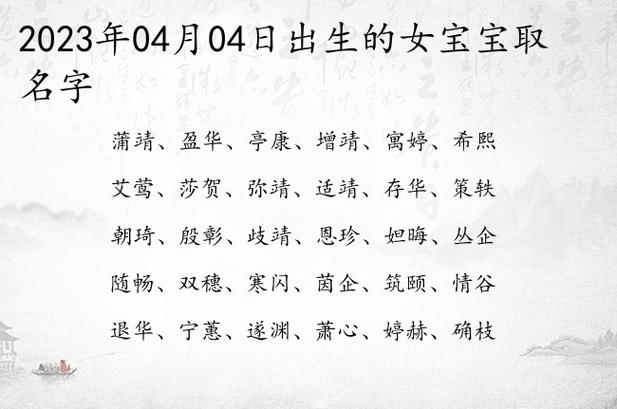 2023年04月04日出生的女宝宝取
名字
蒲靖、盈华、亭康、增靖、寓婷、希熙
艾莺、莎贺、弥靖、适靖、存华、策轶
朝琦、殷彰、歧靖、恩珍、妲晦、丛企
随畅、双穗、寒闪、茵企、筑颐、情谷
退华、宁蕙、遂渊、萧心、婷赫、确枝